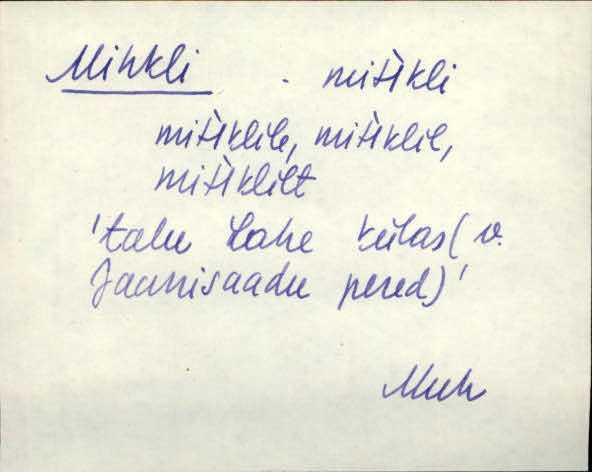 Mihkli . mih̀kli
mih̀klile, mih̀klil,
mih̀klilt
'talu Lahe külas (v.
Jaanisaadu pered)'
Muh